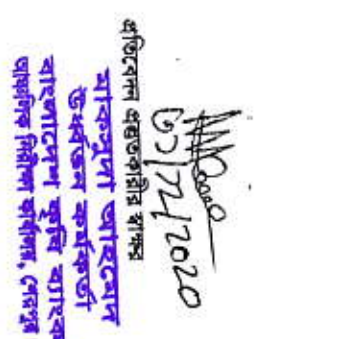 ৩১/১২/২০২০
প্রতিবেদন প্রস্তুতকারীর স্বাক্ষর
মাকসুদা আহমেদ
ঊর্ধ্বতন কর্মকর্তা
বাংলাদেশ কৃষি ব্যাংক
আঞ্চলিক নিরীক্ষা কার্যালয়, শেরপুর